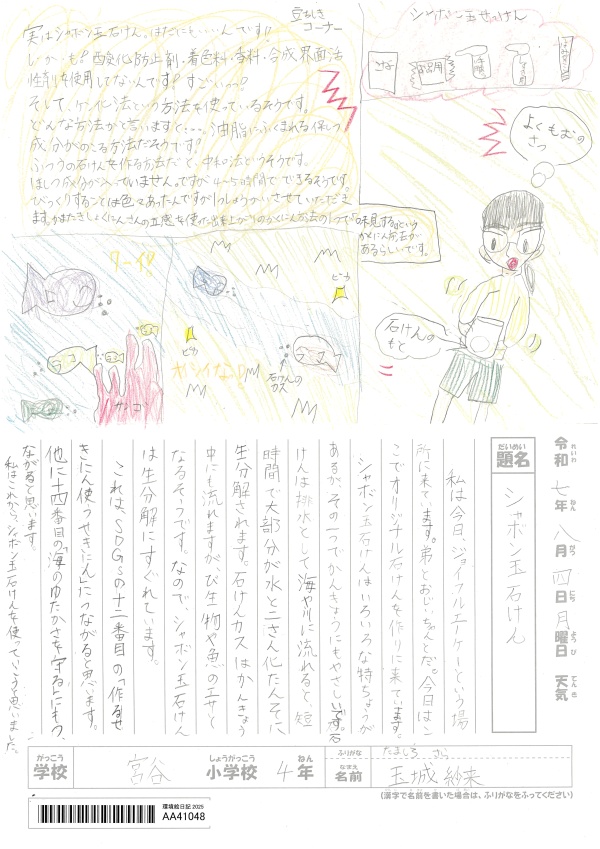 豆ちしき
コーナー
実はシャボン玉石けん。はだにもいいんです!!
しかも!酸化防止剤・着色料・香料・合成界面活
性剤を使用してないんです!すごいっっ?
そして、ケン化法という方法を使っているそうです。
どんな方法かと言いますと…。油脂にふくまれる保しつ
成分がのこる方法だそうです!
ふつうの石けんを作る方法だと、中和の法というそうです。
ほしつ成分が入っていません。ですが4~5時間でできるそうです。
びっくりすることは色々あったんですが1つしょうかいさせていただき
ます。かまたきしょくにんさんの五感を使った出来上がりのかくにん方法の1つで「味見する」という
かくにん方法が
あるらしいです。
シャボン玉せっけん
こな
食品用
手洗
しょくき用
はみがき
よくもむの
さっ
石けんの
もと
ワーイ!
サンゴ
ピカ
ピカ
オイシイなっ!
石けんの
カス
令和七年八月四日月曜日 天気
れいわ ねん がつ にち ようび てんき
題名 シャボン玉石けん
だいめい
私は今日、ジョイフルエーケーという場
所に来ています。弟とおじいちゃんとだ。今日はこ
こでオリジナル石けんを作りに来ています。
シャボン玉石けんはいろいろな特ちょうが
あるが、その一つでかんきょうにもやさしいです。石
けんは排水として海や川に流れると、短
時間で大部分が水と二さん化たんそに
生分解されます。石けんカスはかんきょう
中にも流れますがび生物や魚のエサと
なるそうです。なので、シャボン玉石けん
は生分解にすぐれています。
これは、SDGsの十二番目の「作るせ
きにん使うせきにん」につながると思います。
他に十四番目の「海のゆたかさを守る」にもつ
ながると思います。
私はこれから、シャボン玉石けんを使っていこうと思いました。
がっこう しょうがっこう ねん ふりがな たましろ さら
学校 宮谷 小学校 4年 なまえ 名前 玉城 紗来
(漢字で名前を書いた場合は、ふりがなをふってください)
環境絵日記 2025
AA41048